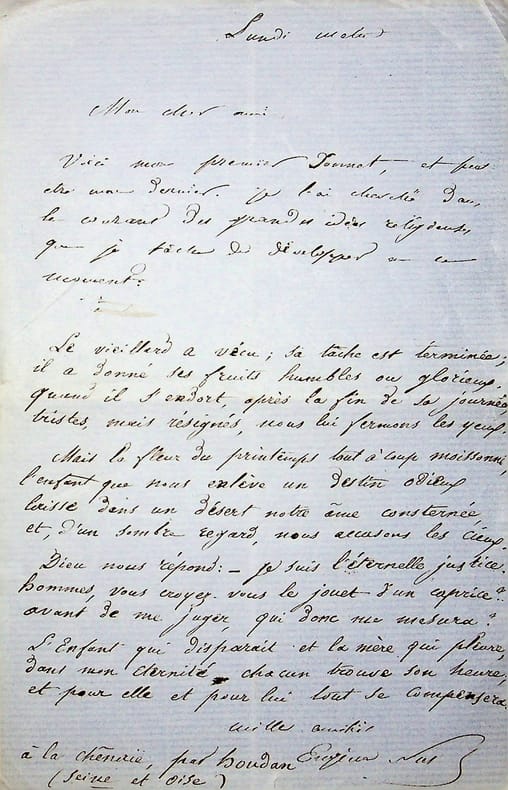 Lundi matin
Mon cher ami
Voici mon premier Sonnet, et peut
être mon dernier. je l'ai cherché dans
le courant des grandes idées religieuses
que je tâche de développer en ce
moment.
Le vieillard a vécu ; sa tâche est terminée ;
il a donné ses fruits humbles ou glorieux.
quand il s'endort, après la fin de sa journée,
tristes, mais résignés, nous lui fermons les yeux.
Mais la fleur du printemps tout à coup moissonnée,
l'enfant que nous enlève un destin odieux
laisse dans un désert notre âme consternée
et, d'un sombre regard, nous accusons les cieux.
Dieu nous répond : – je suis l'éternelle justice.
hommes, vous croyez-vous le jouet d'un caprice ?
avant de me juger, qui donc me mesura ?
L'Enfant qui disparait et la mère qui pleure,
dans mon éternité chacun trouve son heure,
et pour elle et pour lui tout se compensera.
mille amitiés
à la chênerie, par houdan Eugène Nus
(Seine et Oise)